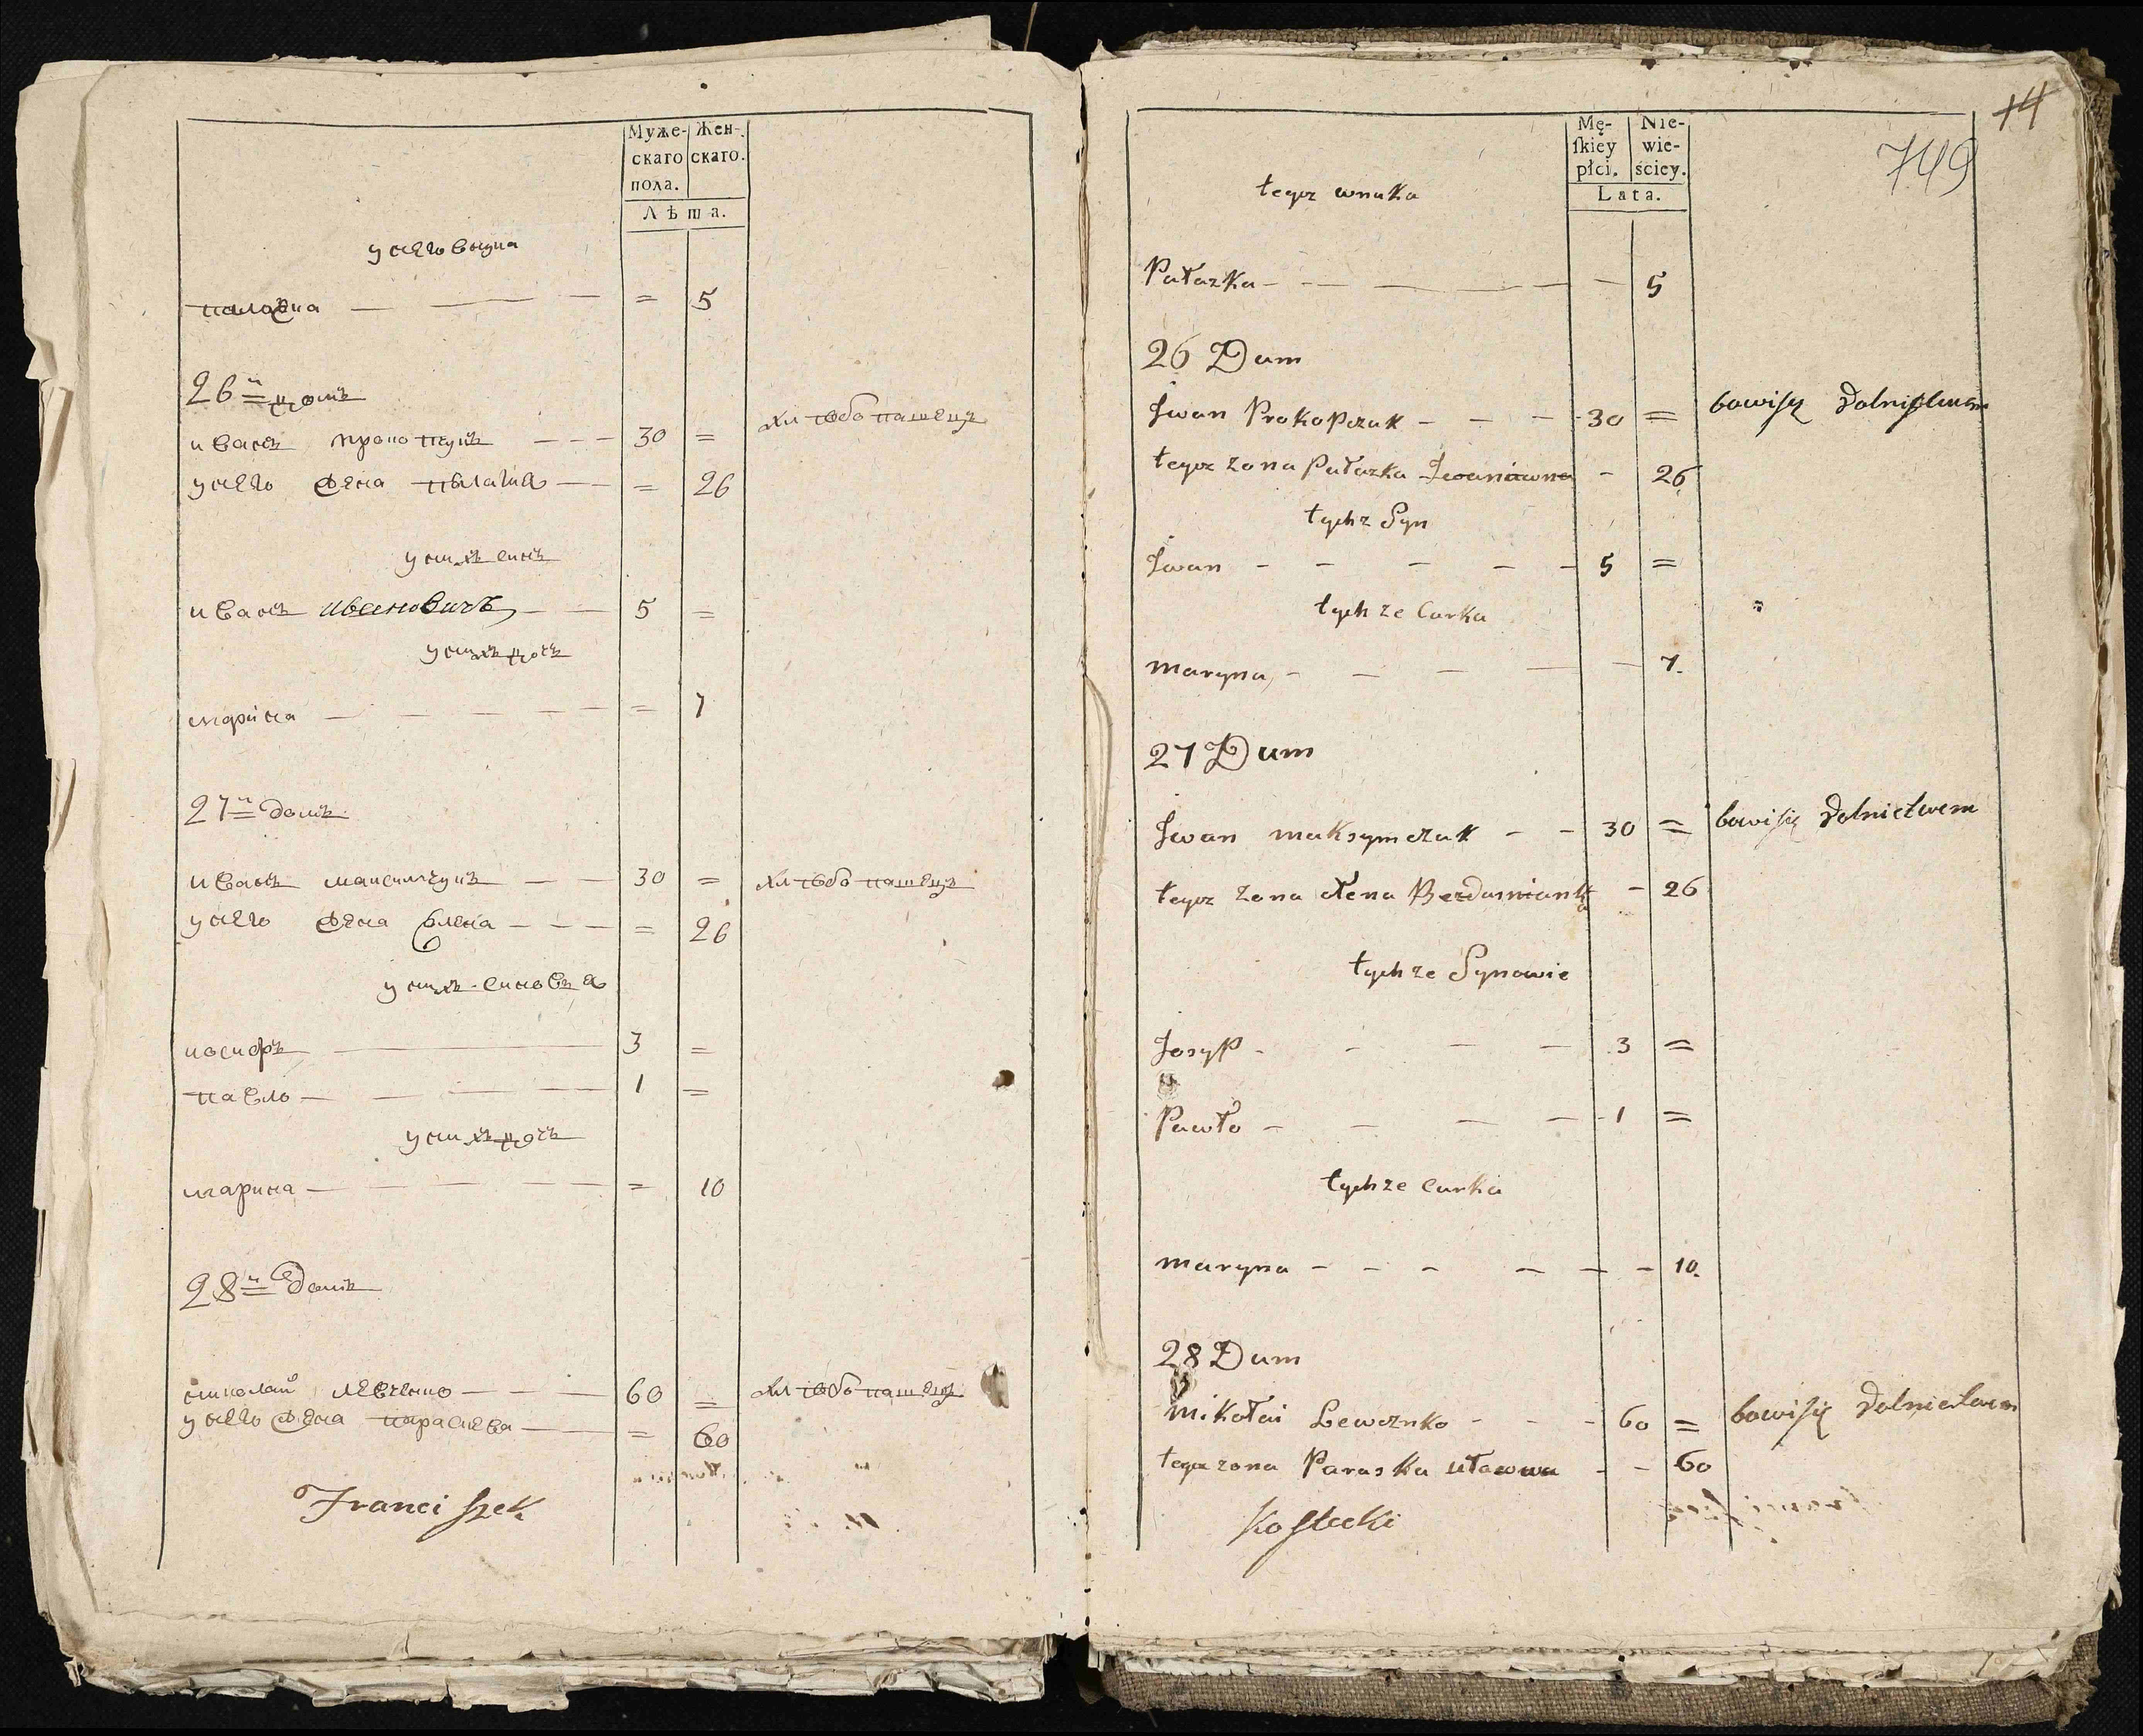 Муже-
скаго
пола.
Жен-
скаго.
Лѣта.
у него внука
палажка — = 5
26й домъ
иванъ прокопчукъ — 30 = хлѣбопашецъ
у него жена палагия — = 26
у нихъ синъ
иванъ ивановичъ — 5 =
у нихъ дочь
марина — = 7
27й домъ
иванъ максимчукъ — 30 = хлѣбопашецъ
у него жена олена — = 26
у нихъ синовья
иосифъ — 3 =
павло — 1 =
у нихъ дочь
марина — = 10
28й домъ
николай левченко — 60 = хлѣбопашецъ
у него жена параскева — = 60
Franciszek
14
749
Mę-
ſkiey
płci.
Nie-
wie-
ściey.
Lata.
tegoz wnuka
Pałazka — 5
26 Dum
Jwan Prokopczuk — 30 = bawiſię Rolnictwem
tegoz zona Pałazka Jwaniawna — 26
tychz Syn
Jwan — 5 =
tychze Curka
maryna — 7.
27 Dum
Jwan maksymczuk — 30 = bawiſię Rolnictwem
tegoz zona ołena — 26
tychze Synowie
Josyp — 3 =
Pawło — 1 =
tychze Curka
maryna — 10.
28 Dum
Mikołai Lewcznko — 60 = bawiſię Rolnictwem
tegoz zona Paraska — 60
Koſtecki